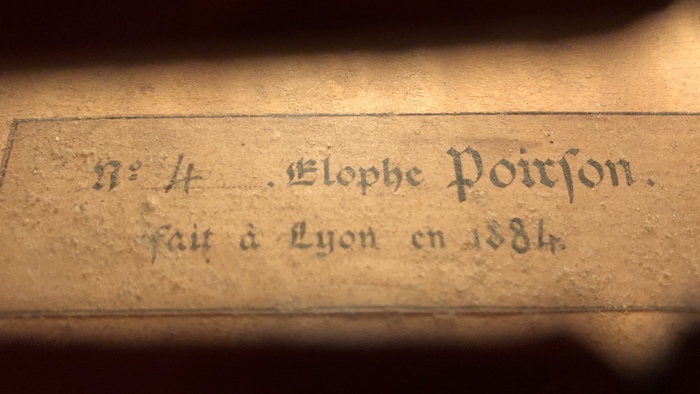 Nº 4 . Elophe Poirſon.
fait à Lyon en 1884.